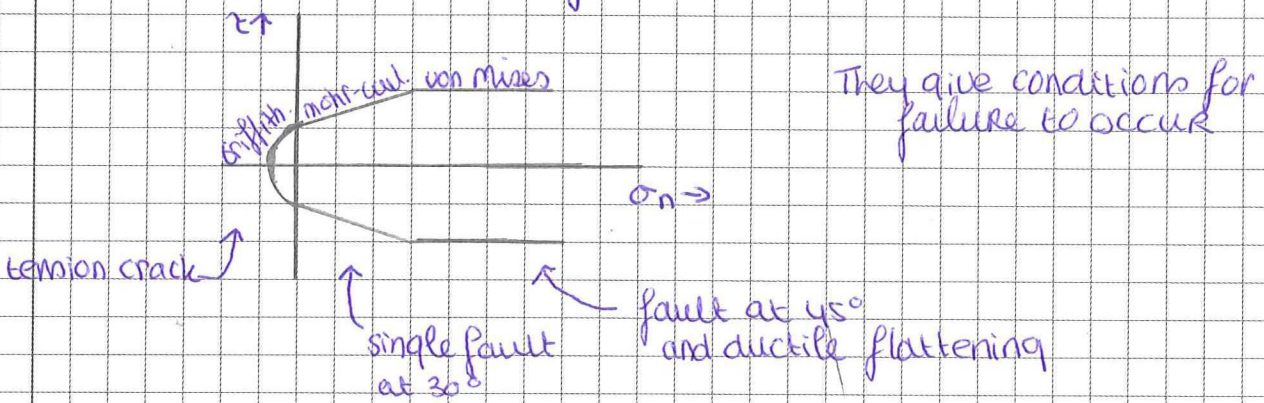 τ↑
Griffith. mohr-coul. von mises
They give conditions for
failure to occur
σn→
tension crack
single fault
at 30°
fault at 45°
and ductile flattening